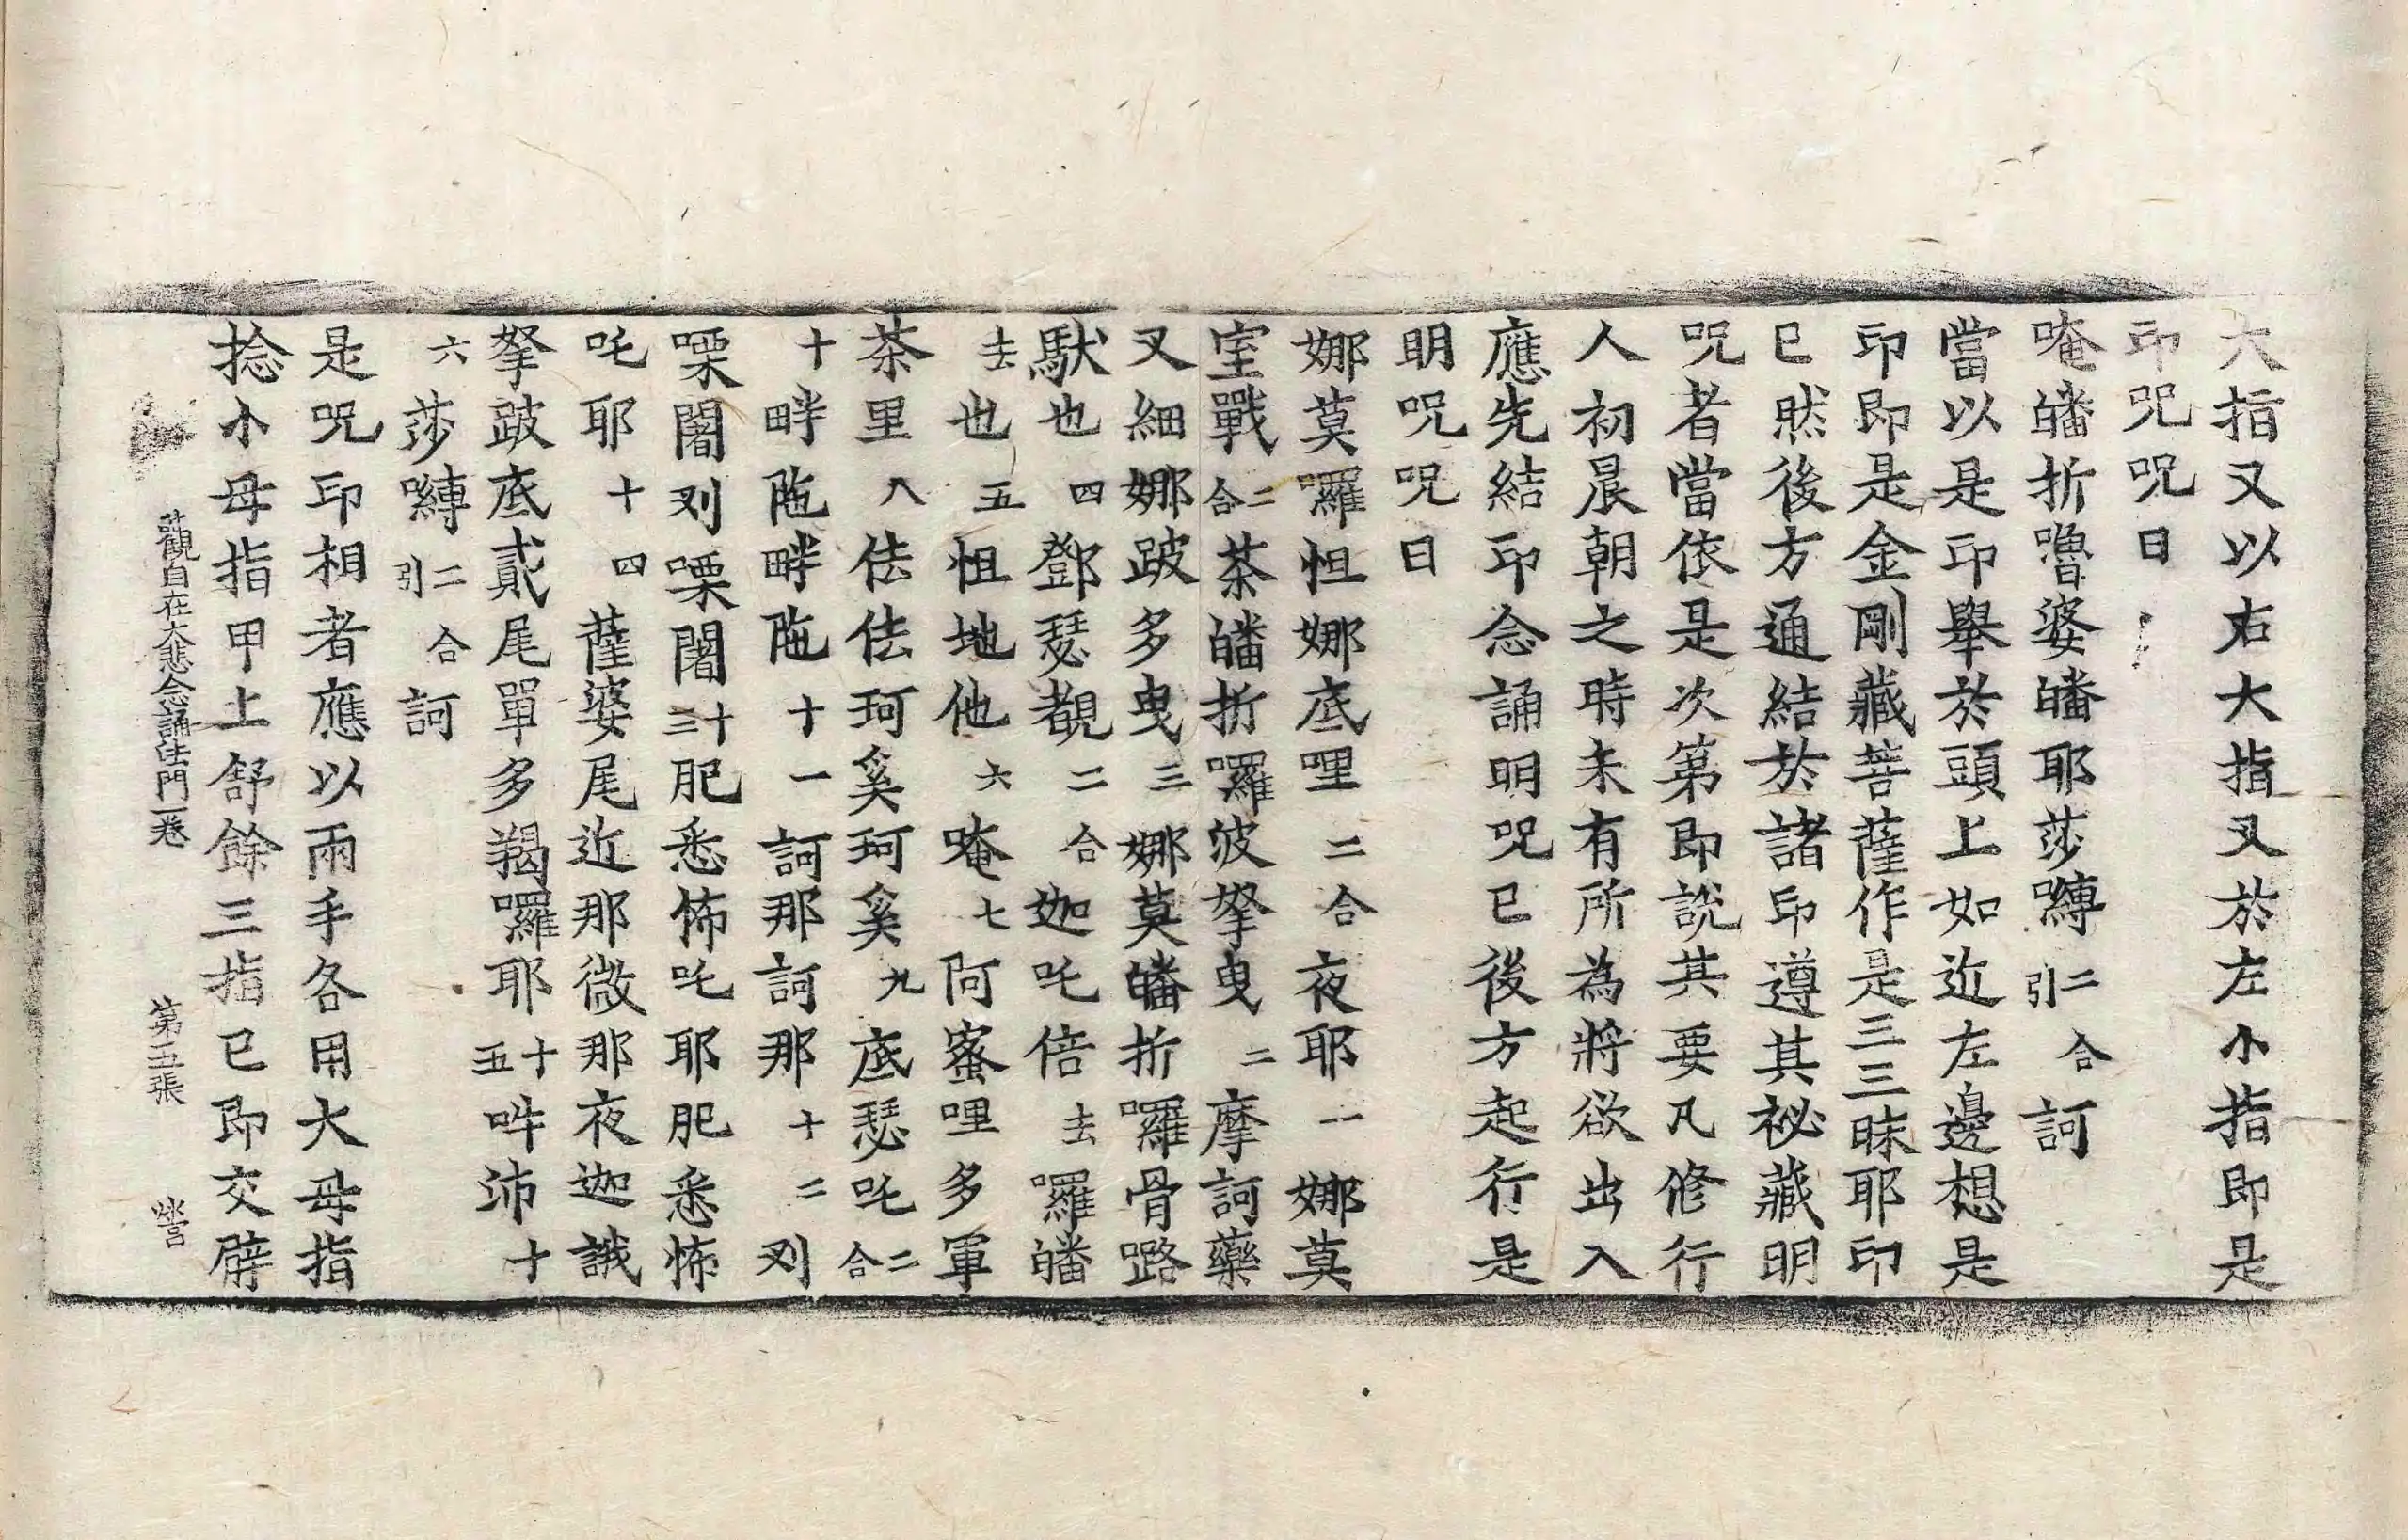 大指又以右大指叉於左小指即是
印呪呪曰
唵皤折嚕婆皤耶莎嚩二合引訶
當以是印舉於頭上如近左邊想是
印即是金剛藏菩薩作是三三昧耶印
已然後方通結於諸印遵其祕藏明
呪者當依是次第即說其要凡修行
人初晨朝之時未有所為將欲出入
應先結印念誦明呪已後方起行是
明呪呪曰
娜莫囉怛娜底哩二合夜耶一娜莫
室戰二合荼皤折囉波拏曳二摩訶藥
叉細娜跛多曳三娜莫皤折囉骨𡀔
馱也四鄧瑟覩二合迦吒倍去羅皤
去也五怛地他六唵七阿蜜哩多軍
荼里八佉佉珂奚珂奚九底瑟吒二合
十畔陁畔陁十一訶那訶那十二刈
㗚闍刈㗚闍十三肥悉怖吒耶肥悉怖
吒耶十四薩婆尾近那微那夜迦誐
拏跛底貳尾單多羯囉耶十五吽沛十
六莎嚩二合引訶
是呪印相者應以兩手各用大母指
捻小母指甲上舒餘三指已即交臂
觀自在大悲念誦法門一卷 第五張